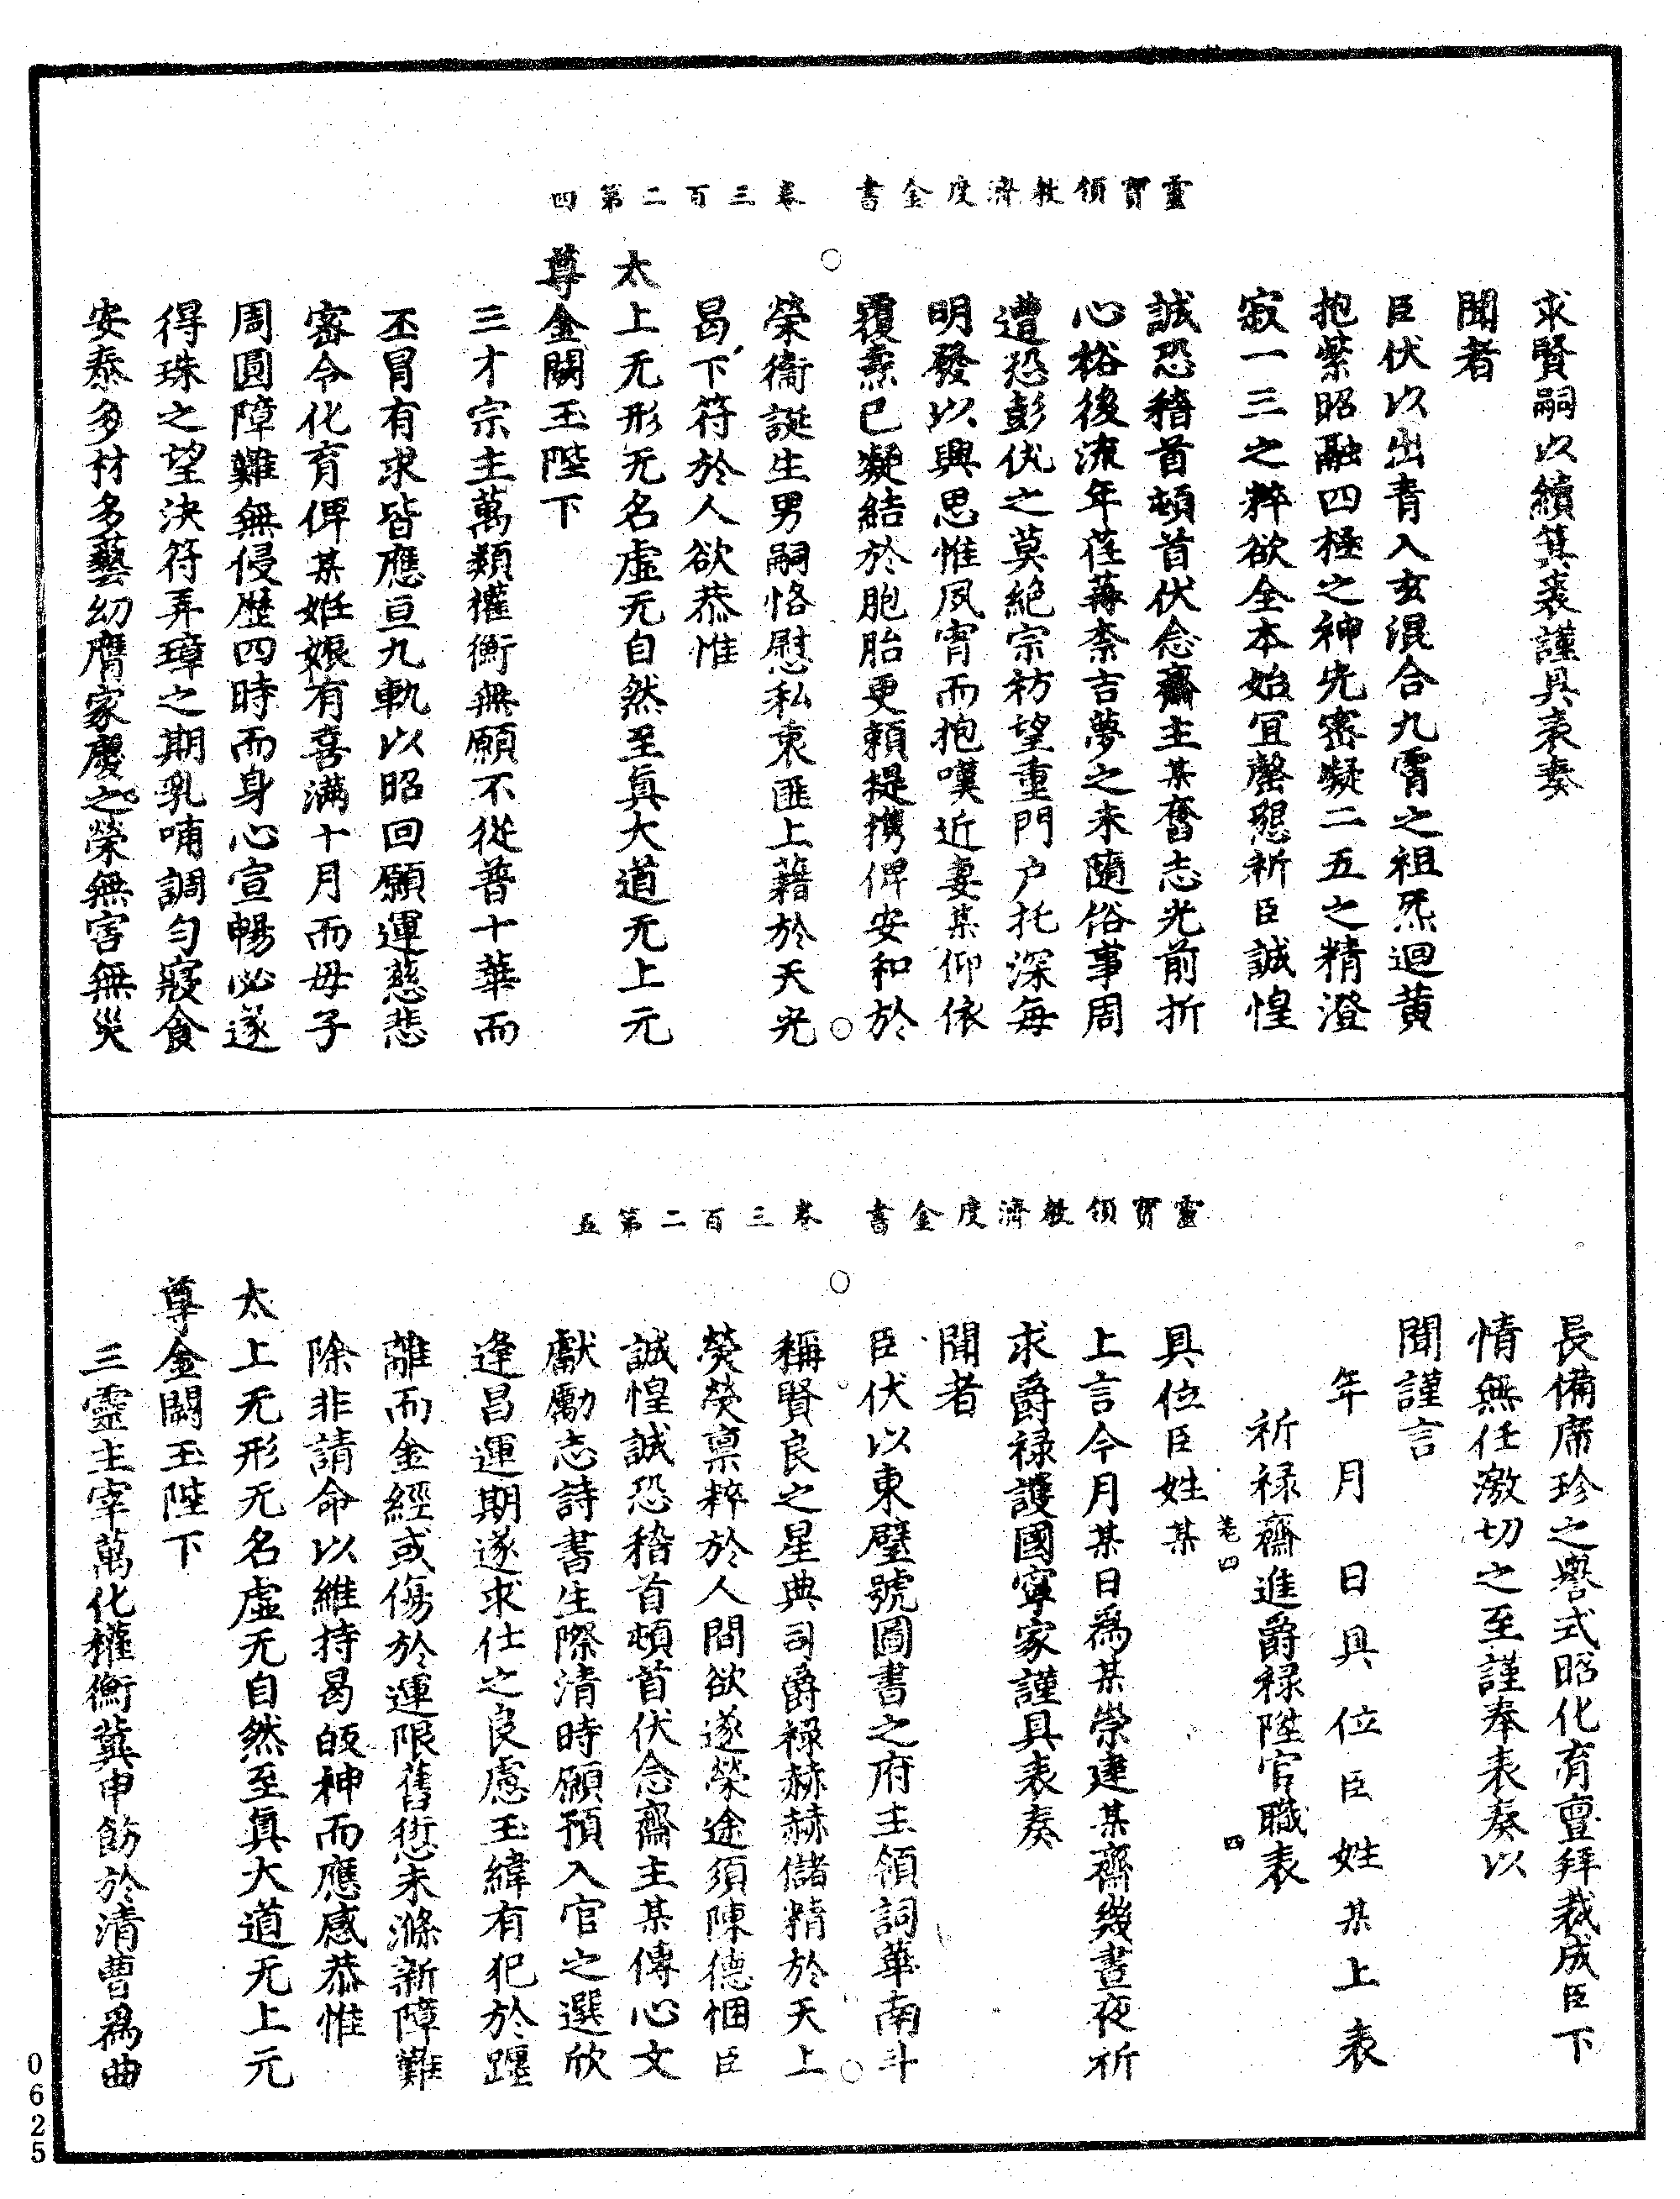 靈寶領教濟度金書 卷三百二第四
求賢嗣以續箕裘謹具表奏
聞者
臣伏以出青入玄混合九霄之祖炁迴黃
抱紫昭融四極之神光密凝二五之精澄
寂一三之粹欲全本始宜罄懇祈臣誠惶
誠恐稽首頓首伏念齋主某奮志光前折
心裕後流年荏苒柰吉夢之未隨俗事周
遭恐彭伉之莫絕宗祊望重門户托深每
明發以興思惟夙宵而抱嘆近妻某仰依
覆燾已凝結於胞胎更賴提攜俾安和於
榮衞誕生男嗣恪慰私衷匪上藉於天光
曷下符於人欲恭惟
太上无形无名虛无自然至眞大道无上元
尊金闕玉陛下
三才宗主萬類權衡無願不從普十華而
丕冒有求皆應亘九軌以昭回願運慈悲
密令化育俾某姙娠有喜滿十月而母子
周圓障難無侵歷四時而身心宣暢必遂
得珠之望決符弄璋之期乳哺調勻寢食
安泰多材多藝幼膺家慶之榮無害無災
靈寶領教濟度金書 卷三百二第五
長備席珍之譽式昭化育亶拜裁成臣下
情無任激切之至謹奉表奏以
聞謹言
年 月 日具位臣姓某上表
祈禄齋進爵禄陞官職表
卷四 四
具位臣姓某
上言今月某日爲某崇建某齋幾晝夜祈
求爵禄護國寧家謹具表奏
聞者
臣伏以東璧號圖書之府主領詞華南斗
稱賢良之星典司爵禄赫赫儲精於天上
熒熒禀粹於人間欲遂榮途須陳德悃臣
誠惶誠恐稽首頓首伏念齋主某傳心文
獻勵志詩書生際清時願預入官之選欣
逢昌運期遂求仕之良慮玉緯有犯於躔
離而金經或傷於運限舊愆未滌新障難
除非請命以維持曷皈神而應感恭惟
太上无形无名虛无自然至眞大道无上元
尊金闕玉陛下
三靈主宰萬化權衡冀申飭於清曹爲曲
0625